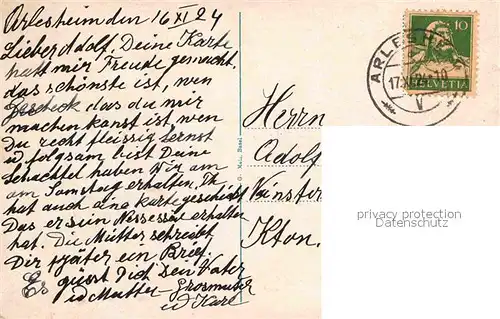 Arlesheim den 16 XI 24
Lieber Adolf, Deine Karte
hatt mir Freude gemacht.
das schönste ist, wen
das du mir
machen kanst ist, wen
Du recht fleissig lernst
u folgsam bist Deine
Schachtel haben Wir am
am Samstag erhalten, Th
hat auch eine Karte geschickt
Das er sein Nessessär erhalten
hat. Die Mutter schreibt
Dir später ein Brief.
Es grüsst Dich Dein Vater
u Mutter - Grosmutter
u Karl
G. Metz, Basel
Herrn
Adolf
Kton.
10
HELVETIA
ARLESHEIM
17.XI.24.10
V
privacy protection
VARIMEX DORMAGEN